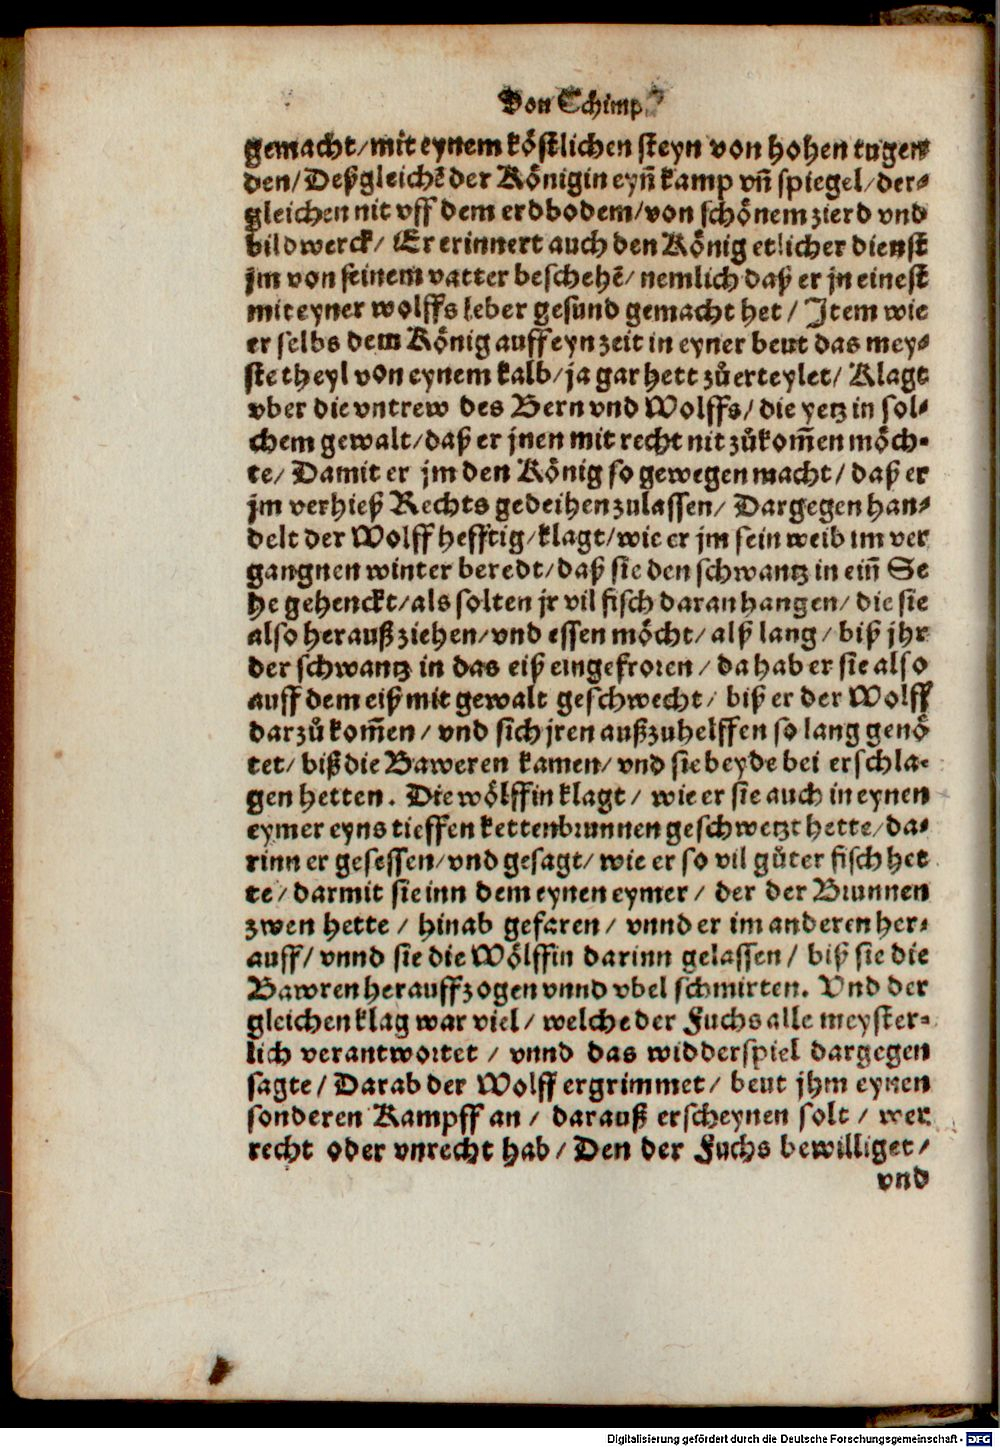 Von Schimp
gemacht/mit eynem köstlichen steyn von hohen tugen
den/Deßgleichē der Königin eyn̄ kamp vn̄ spiegel/der⸗
gleichen nit vff dem erdbodem/von schönem zierd vnd
bildwerck/ Er erinnert auch den König etlicher dienst
jm von seinem vatter beschehē/ nemlich daß er jn einest
mit eyner wolffs leber gesund gemacht het / Item wie
er selbs dem König auff eyn zeit in eyner beut das mey⸗
ste theyl von eynem kalb/ja gar hett zůerteylet/ Klagt
vber die vntrew des Bern vnd Wolffs/die yetz in sol⸗
chem gewalt/daß er jnen mit recht nit zůkom̄en möch⸗
te/ Damit er jm den König so gewegen macht/daß er
jm verhieß Rechts gedeihen zulassen/ Dargegen han⸗
delt der Wolff hefftig/klagt/wie er jm sein weib im ver
gangnen winter beredt/daß sie den schwantz in ein̄ Se
he gehenckt/als solten jr vil fisch daran hangen/die sie
also herauß ziehen/vnd essen möcht/alß lang/biß jhr
der schwantz in das eiß eingefroren/da hab er sie also
auff dem eiß mit gewalt geschwecht/ biß er der Wolff
darzů kom̄en/vnd sich jren außzuhelffen so lang genö
tet/biß die Baweren kamen/vnd sie beyde bei erschla⸗
gen hetten. Die wölffin klagt/ wie er sie auch in eynen
eymer eyns tieffen kettenbrunnen geschwetzt hette/da⸗
rinn er gesessen/vnd gesagt/wie er so vil gůter fisch het
te/darmit sie inn dem eynen eymer/ der der Brunnen
zwen hette / hinab gefaren/ vnnd er im anderen her⸗
auff/vnnd sie die Wölffin darinn gelassen/biß sie die
Bawren herauff zogen vnnd vbel schmirten. Vnd der
gleichen klag war viel/welche der Fuchs alle meyster⸗
lich verantwortet / vnnd das widderspiel dargegen
sagte/Darab der Wolff ergrimmet/ beut jhm eynen
sonderen Kampff an/ darauß erscheynen solt/wer
recht oder vnrecht hab/Den der Fuchs bewilliget/
vnd
Digitalisierung gefördert durch die Deutsche Forschungsgemeinschaft - DFG